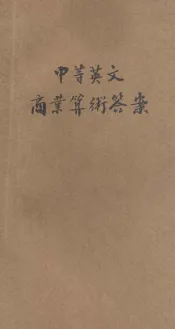 中等英文
商業算術答案